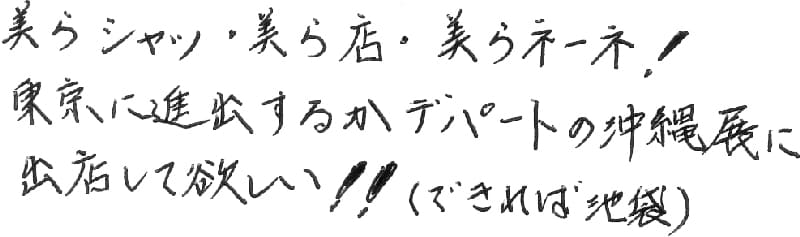 美らシャツ・美ら店・美らネーネ!
東京に進出するかデパートの沖縄展に
出店して欲しい!!(できれば池袋)